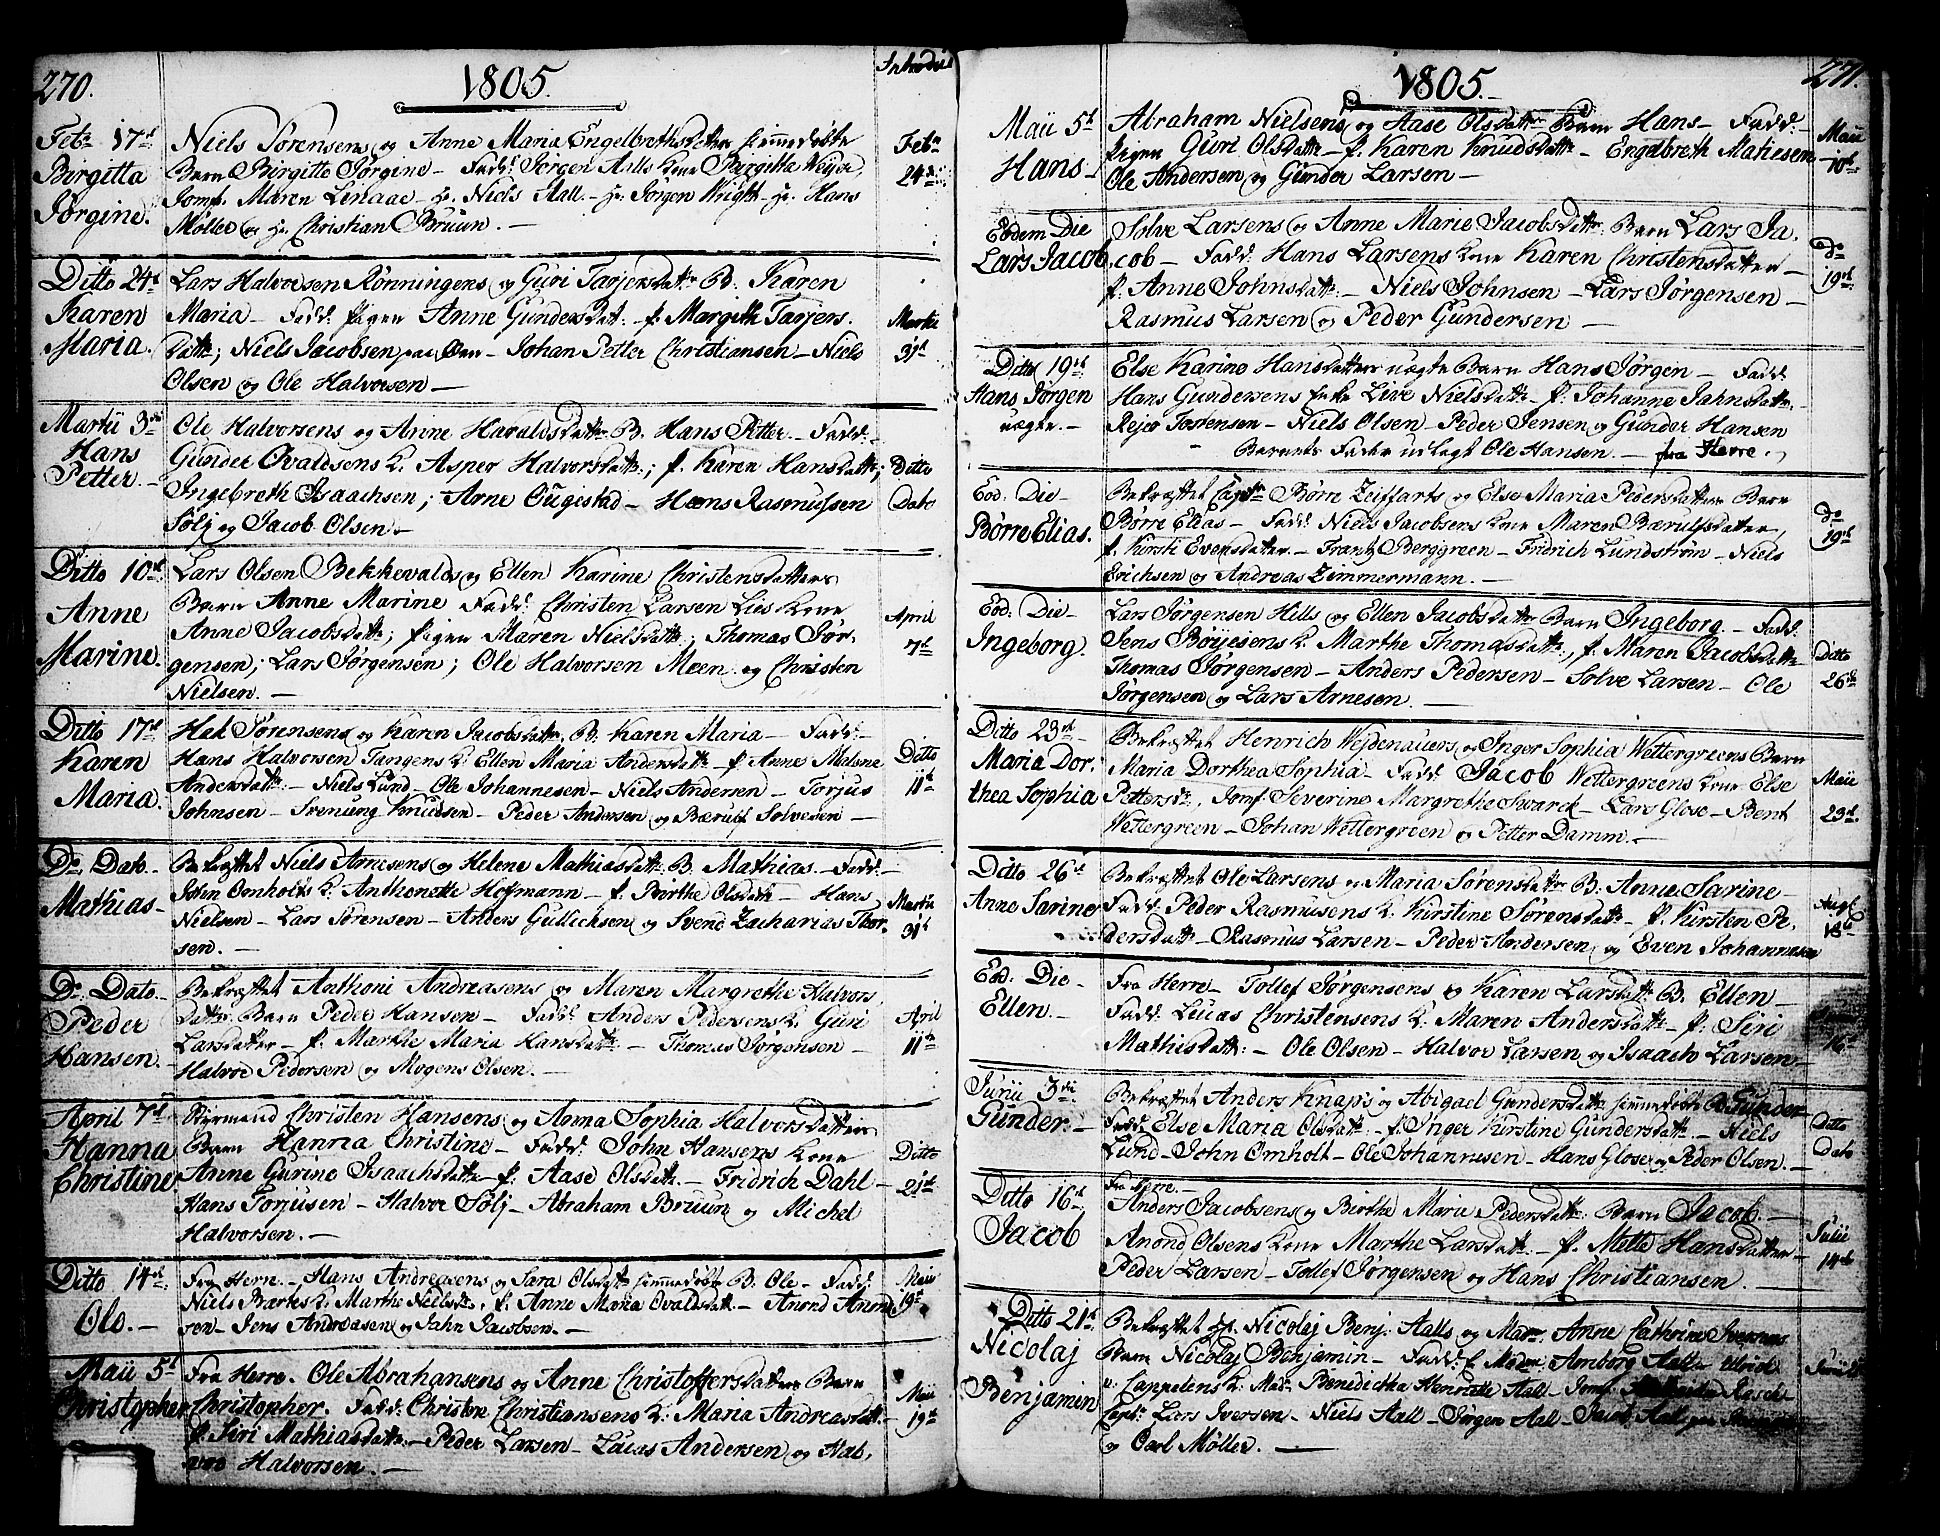 270.
1805.
Introduc
Febr 17de
Birgitta
Jørgine.
Niels Sørensens og Anne Maria Engelbrethsdatter hjemmedøbte
Barn Birgitte Jørgine — Fadd: Jørgen Aalls Kone Birgitha Weyer,
Jomf. Maren Linaae — Hr. Niels Aall — Hr. Jørgen Wright — Hr. Hans
Møller og Hr. Christian Bruun. —
Febr
24de
Ditto 24d
Karen
Maria.
Lars Halvorsen Rønningens og Guri Tarjersdattr B: Karen
Maria — Fadd: Pigen Anne Gundersdat: — P. Margith Tarjers-
Datt:; Niels Jacobsen paa Øen — Johan Petter Christiansen — Niels
Olsen og Ole Halvorsen —
Martii
31d
Martii 3die
Hans
Petter. —
Ole Halvorsens og Anne Havaldsdattr B. Hans Petter — Fadd: —
Gunder Ovaldsens K. Aspeo Halvorsdatt:; P. Karen Hansdatt:;
Ingebreth Isaachsen; Arne Ougistad — Hans Rasmussen
Sølj og Jacob Olsen —
Ditto
Dato
Ditto 10d
Anne
Marine.
Lars Olsen Bekkevalds og Ellen Karine Christensdatters
Barn Anne Marine Fadd: Christen Larsen Lies Kone
Anne Jacobsdatt:; Pigen Maren Nielsdatt:; Thomas Jør-
gensen; Lars Jørgensen; Ole Halvorsen Moen og Christen
Nielsen. —
April
7d
Ditto 17d
Karen
Maria.
Hak Sørensens og Karen Jacobsdattr B. Karen Maria — Fadd: —
Hans Halvorsen Tangens K. Ellen Maria Andersdatt: — P. Anne Malene
Andersdatt: — Niels Lund — Ole Johannesen — Niels Andersen — Torjus
Johnsen — Svenung Knudsen — Peder Andersen og Bærulf Solvesen —
Ditto
11d
Do Dato.
Mathias —
Bekræftet Niels Arnesens og Helene Mathiasdattr B. Mathias — Fadd: —
Søren Omholts K. Anthonette Hofmann — P. Birthe Olsdatt: — Hans
Nielsen — Lars Sørensen — Anders Gullichsen og Svend Zacharias Thor-
sen. —
Martii
31d
Do Dato.
Peder
Hansen.
Bekræftet Anthoni Andreasens og Maren Margrethe Halvors
Datter Barn Peder Hansen — Fadd: Anders Pedersens K. Guri
Larsdatter — P. Marthe Maria Hansdatt: — Thomas Jørgensen —
Halvor Pedersen og Mogens Olsen. —
April
11te
April 7d
Hanna
Christine
Styrmand Christen Hansens og Anna Sophia Halvorsdatters
Barn Hanna Christine — Fadd: John Hansens Kone
Anne Gurine Isaachsdatt: — P. Aase Olsdatt: — Fridrich Dahl —
Hans Torjusen — Halvor Sølj — Abraham Bruun og Michel
Halvorsen. —
Ditto
21d
Ditto 14d
Ole. —
Fra Herre. — Hans Andreasens og Sara Olsdattr hjemmedøbte B. Ole — Fadd:
Niels Barths K. Marthe Nielsdt., P. Anne Maria Ovaldsdatt: — Anond Anond-
sen — Jens Andreasen og Jahn Jacobsen. —
Maii
19d
Maii 5d
Christopher
Fra Herre. Ole Abrahansens og Anne Christoffersdatters Barn
Christopher. Fadd: Christen Christiansens K: Maria Andreasdatt: —
P. Siri Mathiasdatt: — Peder Larsen — Lucas Andersen og Hal-
vor Halvorsen. —
Maii
19d
271.
1805.
Maii 5d
Hans —
Abraham Nielsens og Aase Olsdattr Barn Hans — Fadd: —
Pigen Guri Olsdatt: — P. Karen Knudsdatt: — Engelbreth Matiesen
Ole Andersen og Gunder Larsen —
Maii
10d
Eodem Die
Lars Jacob
Solve Larsens og Anne Marie Jacobsdattr Barn Lars Ja-
cob — Fadd: Hans Larsens Kone Karen Christensdatter —
P. Anne Johnsdatt: — Niels Johnsen — Lars Jørgensen —
Rasmus Larsen og Peder Gundersen —
do
19d
Ditto 19d
Hans Jørgen
uægte. —
Else Karine Hansdatters uægte Barn Hans Jørgen — Fadd:
Hans Gundersens Enke Live Nielsdatt: — P. Johanne Jahnsdatt:
Rejer Torstensen — Niels Olsen — Peder Jensen og Gunder Hansen
Barnets Fader udlagt Ole Hansen. — fra Herre.
Eod: Die —
Børre Elias.
Bekræftet Capt: Børre Zeiffarts og Else Maria Pedersdatters Barn
Børre Elias — Fadd: Niels Jacobsens Kone Maren Bærulfsdatter,
P. Kirsti Evensdatter — Frantz Berggreen — Fridrich Lundstrøn — Niels
Erichsen og Andreas Zimmermann. —
do
19d
Eod: Die —
Ingeborg.
Lars Jørgensen Hills og Ellen Jacobsdattr Barn Ingeborg — Fadd:
Jens Böyesens K. Marthe Thomasdatt:, P. Maren Jacobsdatt:
Thomas Jørgensen — Anders Pedersen — Solve Larsen — Ole
Jørgensen og Lars Arnesen. —
Ditto
26de
Ditto 23d —
Maria Dor-
thea Sophia
Bekræftet Henrich Weidenauers og Inger Sophia Wettergreens Barn
Maria Dorthea Sophia — Fadd: Jacob Wettergreens Kone Else
Pettersdr., Jomf: Severine Margrethe Swarck — Lars Glose — Bent
Wettergreen — Johan Wettergreen og Petter Damm. —
Maii
23d
Ditto 26d
Anne Sarine
Bekræftet Ole Larsens og Maria Sørensdattr B: Anne Sarine —
Fadd: Peder Rasmusens K: Kirstine Sørensdatt: — P. Kirsten Pe-
dersdatt: — Rasmus Larsen — Peder Andersen og Even Johannesen
Augt
Eod: Die —
Ellen. —
Fra Herre — Tollef Jørgensens og Karen Larsdattr B. Ellen —
Fadd: Lucas Christensens K: Maren Andersdatt: — P. Siri
Mathisdatt: — Ole Olsen — Halvor Larsen og Isaach Larsen —
16d
Junii 3die
Gunder. —
Bekræftet Anders Knaps og Abigael Gundersdattr hjemmedøbte B. Gunder
Fadd: Else Maria Olsdatt: — P. Inger Kirstine Gundersdatt: — Niels
Lund — John Omholt — Ole Johannesen — Hans Glose og Peder Olsen. —
Ditto
Dato
Ditto 16d
Jacob
Fra Herre. —
Anders Jacobsens og Birthe Maria Pedersdattr Barn Jacob. —
Anond Olsens Kone Marthe Larsdatt: — P. Mette Hansdatter —
Peder Larsen — Tollef Jørgensen og Hans Christiansen. —
Julii
14d
Ditto 21d
Nicolaj
Benjamin
Bekræftet Hr. Nicolaj Benj: Aalls og Mad. Anne Cathrine Iversens
Barn Nicolaj Benjamin — Fadd: Madm Amborg Aall
v: Cappelens K: Mad: Benedictha Henriette Aall — Jomf
Capt: Lars Iversen — Niels Aall — Jørgen Aall — Jacob Aall
og Carl Møller. —